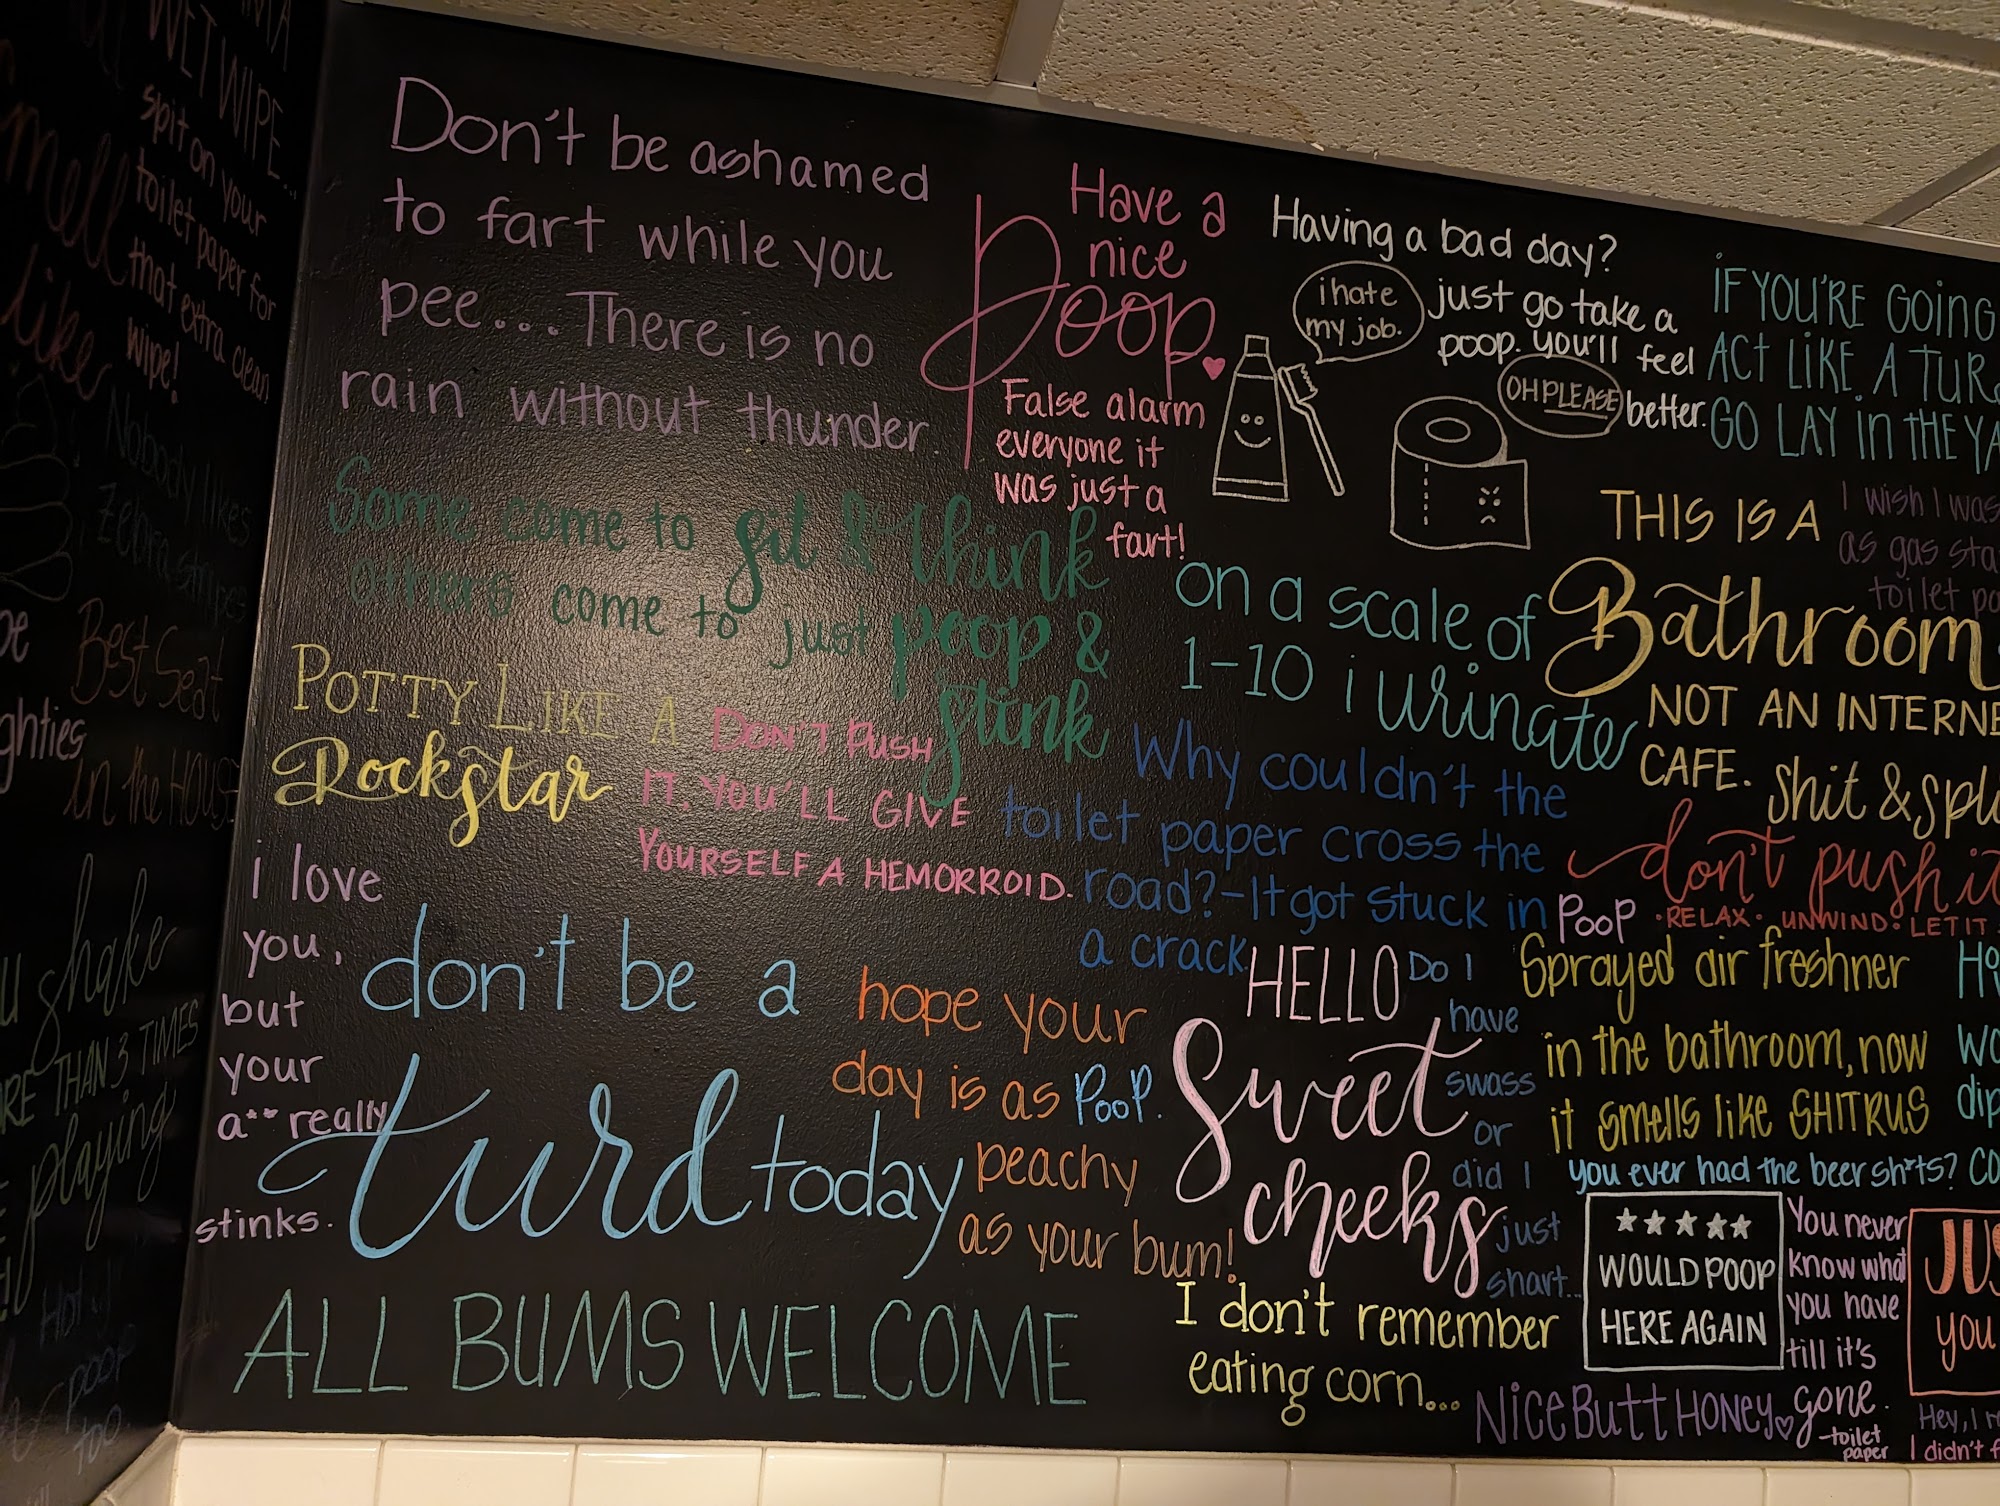 WET WIPE...
spit on your
toilet paper for
that extra clean
wipe!
smell
like
Nobody likes
Zebra stripes
Best Seat
in the House
shake
THAN 3 TIMES
playing
poop
too
Don't be ashamed
to fart while you
pee... There is no
rain without thunder.
Have a
nice
poop.
False alarm
everyone it
was just a
fart!
Having a bad day?
just go take a
poop. you'll feel
better.
i hate
my job.
OH PLEASE
iF YOU'RE GOiNG
ACT LiKE A
GO LAY iN THE
Some come to sit & think
others come to just poop &
stink
on a scale of
1-10 i urinate
THIS IS A
Bathroom
NOT AN
CAFE.
I wish I was
as gas
toilet
POTTY LIKE A
Rockstar
DON'T PUSH
IT, YOU'LL GIVE
YOURSELF A HEMORROID.
Why couldn't the
toilet paper cross the
road?-It got stuck in
a crack.
Shit &
don't push it
•RELAX• UNWIND• LET IT
i love
you,
but
your
a** really
stinks.
don't be a
turd today
hope your
day is as
peachy
as your bum!
POOP.
POOP
HELLO
Sweet
cheeks
Do I
have
swass
or
did I
just
shart...
Sprayed air freshner
in the bathroom, now
it smells like SHITRUS
you ever had the beer sh*ts?
★★★★★
WOULD POOP
HERE AGAIN
You never
know what
you have
till it's
gone.
-toilet
paper
you
ALL BUMS WELCOME
I don't remember
eating corn...
NICE BUTT HONEY
Hey, I
I didn't